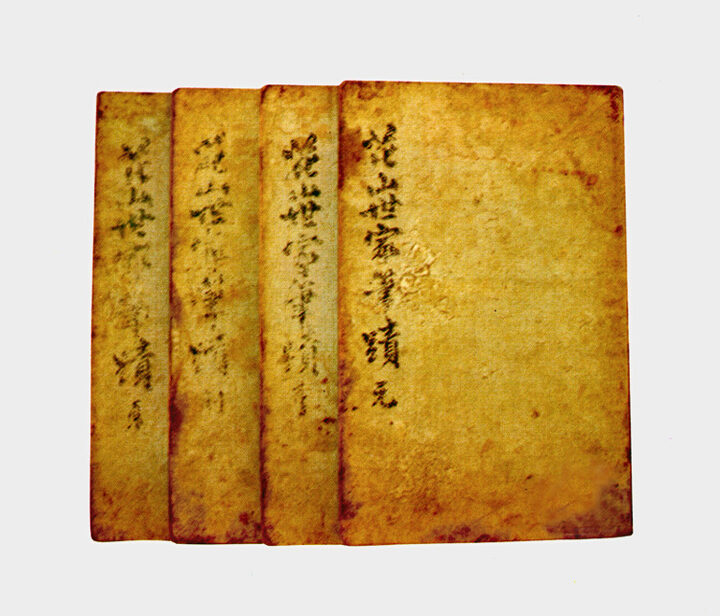 花山世家筆蹟 元
花山世家筆蹟 亨
花山世家筆蹟 利
花山世家筆蹟 貞